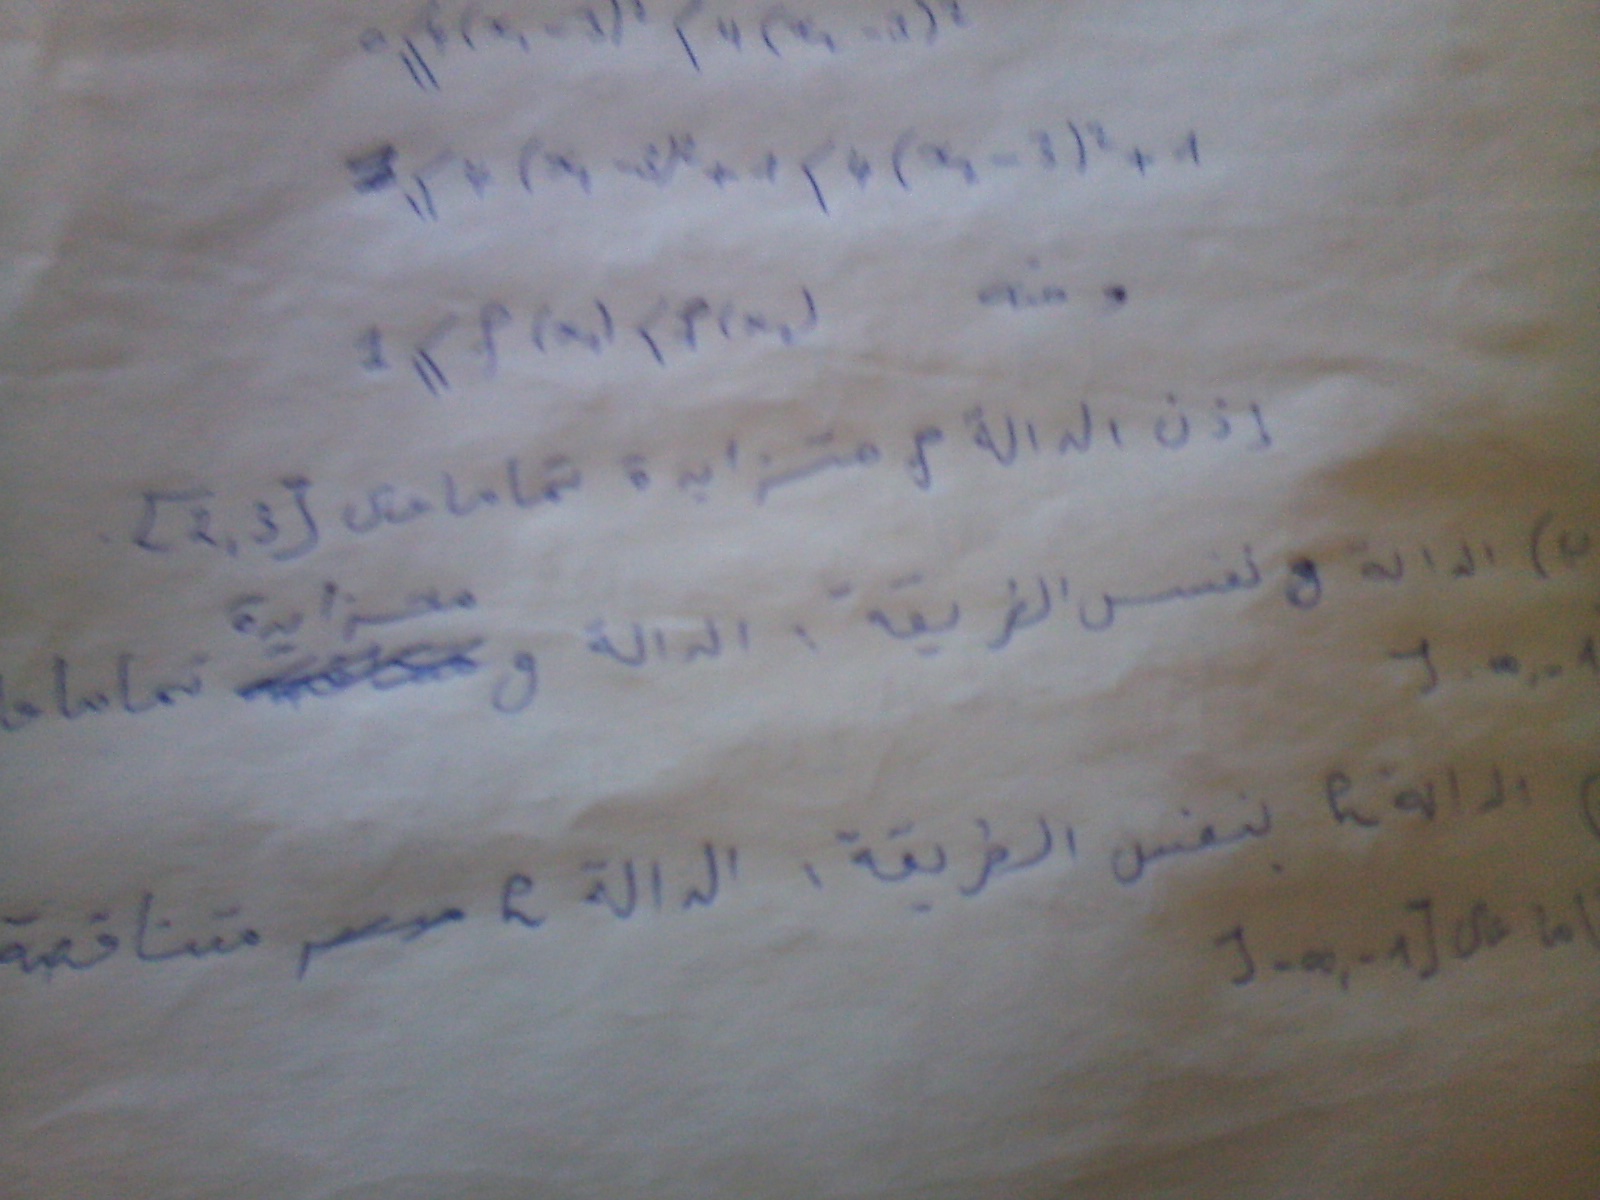 0 ⩽ 4(x₁ - 3)² < 4(x₂ - 3)²
1 ⩽ 4(x₁ - 3)² + 1 < 4(x₂ - 3)² + 1
ومنه 1 ⩽ f(x₁) < f(x₂)
إذن الدالة f متزايدة تماما على [2,3].
ب) الدالة g بنفس الطريقة، الدالة g متزايدة تماما
]-∞,-1
الدالة h بنفس الطريقة، الدالة h متناقصة
تماما على ]-∞,-1]